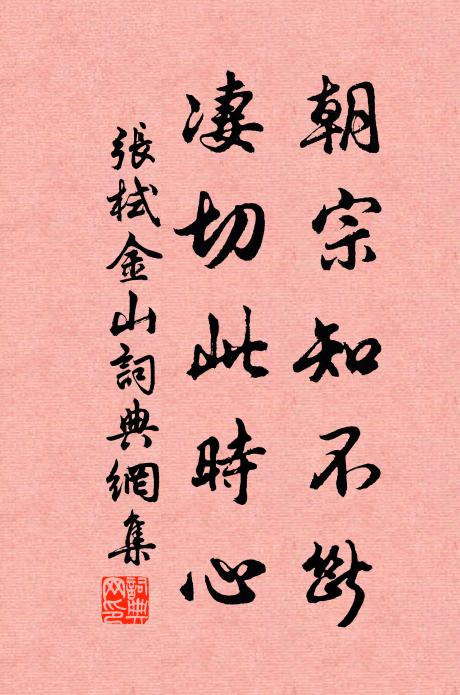 朝宗知不斷
凄切此時心
張栻金山詞典網集
詞典網印